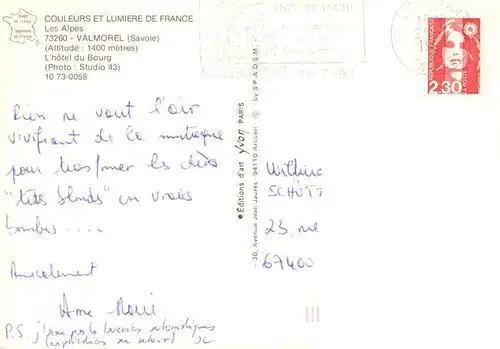 COULEURS ET LUMIERE DE FRANCE
Les Alpes
73260 - VALMOREL (Savoie)
(Altitude : 1400 mètres)
L'hôtel du Bourg
(Photo : Studio 43)
10 73 0058
REPUBLIQUE FRANÇAISE
LA POSTE
2,30
Rien ne vaut l'air
vivifiant de la montagne
pour transformer les
"têtes blondes" en vraies
bombes ....
Amicalement
Anne Marie
P.S. j'aime pas les automatiques
(explications au retour)
● Editions d'art yvon PARIS
30, Avenue Jean Jaurès - 94110 Arcueil © by S.P.A.D.E.M.
SCHÜTT
23, rue
67400